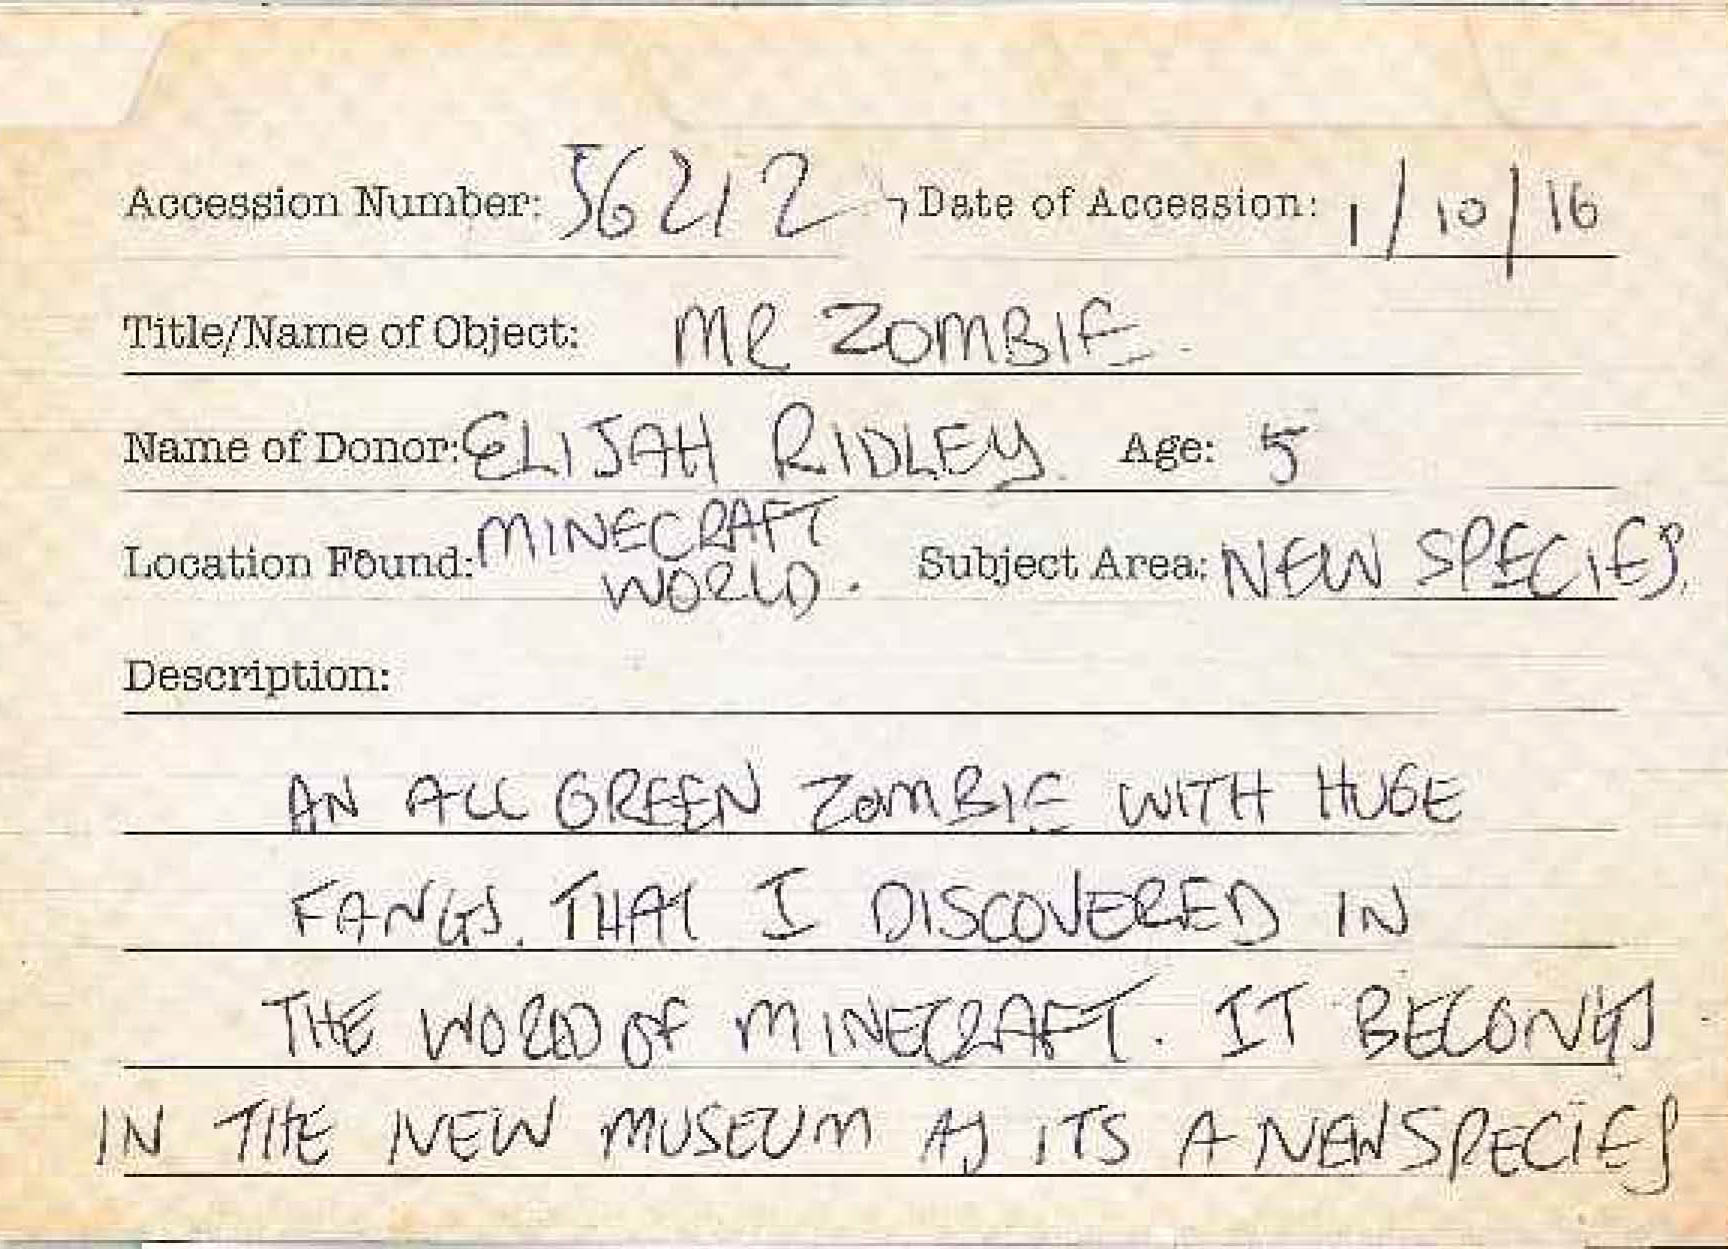 Accession Number: 56212 Date of Accession: 1/10/16
Title/Name of Object: MR ZOMBIE.
Name of Donor: ELIJAH RIDLEY. Age: 5
Location Found: MINECRAFT WORLD. Subject Area: NEW SPECIES.
Description:
AN ALL GREEN ZOMBIE WITH HUGE
FANGS. THAT I DISCOVERED IN
THE WORLD OF MINECRAFT. IT BELONGS
IN THE NEW MUSEUM AS ITS A NEW SPECIES